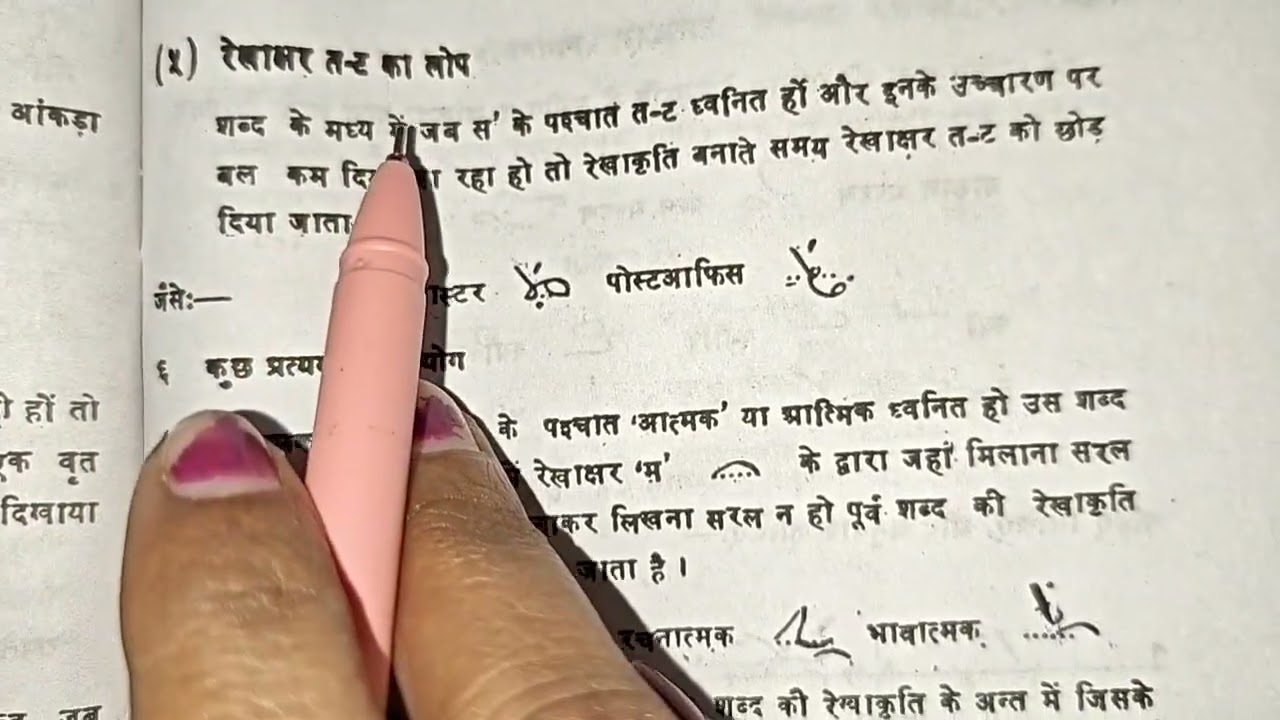 आंकड़ा
ी हों तो
एक वृत
दिखाया
जब
(५) रेखाक्षर त-ट का लोप
शब्द के मध्य में जब स' के पश्चात त-ट ध्वनित हों और इनके उच्चारण पर
बल कम रहा हो तो रेखाकृति बनाते समय रेखाक्षर त-ट को छोड़
दिया जाता
जैसे:— स्टर पोस्टआफिस
६ कुछ
के पश्चात 'आत्मक' या आत्मिक ध्वनित हो उस शब्द
रेखाक्षर 'म' के द्वारा जहां मिलाना सरल
कर लिखना सरल न हो पूर्व शब्द की रेखाकृति
जाता है ।
रचनात्मक भावात्मक
शब्द की रेखाकृति के अन्त में जिसके